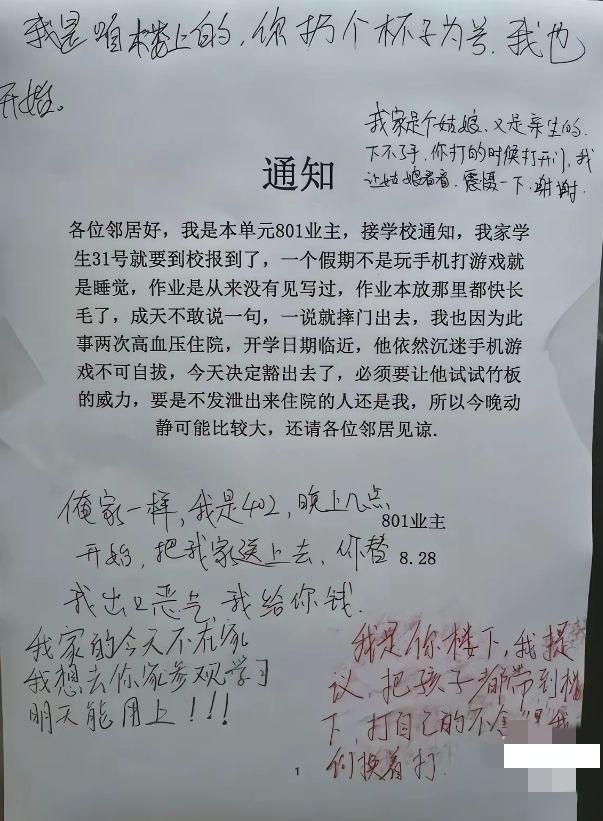 我是咱楼上的,你扔个杯子为号.我也
开始。
我家是个姑娘、又是亲生的.
下不了手,你打的时候打开门,我
让姑娘看看.震慑一下.谢谢.
通知
各位邻居好，我是本单元801业主，接学校通知，我家学
生31号就要到校报到了，一个假期不是玩手机打游戏就
是睡觉，作业是从来没有见写过，作业本放那里都快长
毛了，成天不敢说一句，一说就摔门出去，我也因为此
事两次高血压住院，开学日期临近，他依然沉迷手机游
戏不可自拔，今天决定豁出去了，必须要让他试试竹板
的威力，要是不发泄出来住院的人还是我，所以今晚动
静可能比较大，还请各位邻居见谅.
801业主
8.28
俺家一样,我是402,晚上几点
开始,把我家送上去,你替
我出口恶气,我给你钱.
我家的今天不在家
我想去你家参观学习
明天能用上!!!
我是你楼下,我提
议,把孩子都带到楼
下,打自己的不舍 我
们换着打.
1